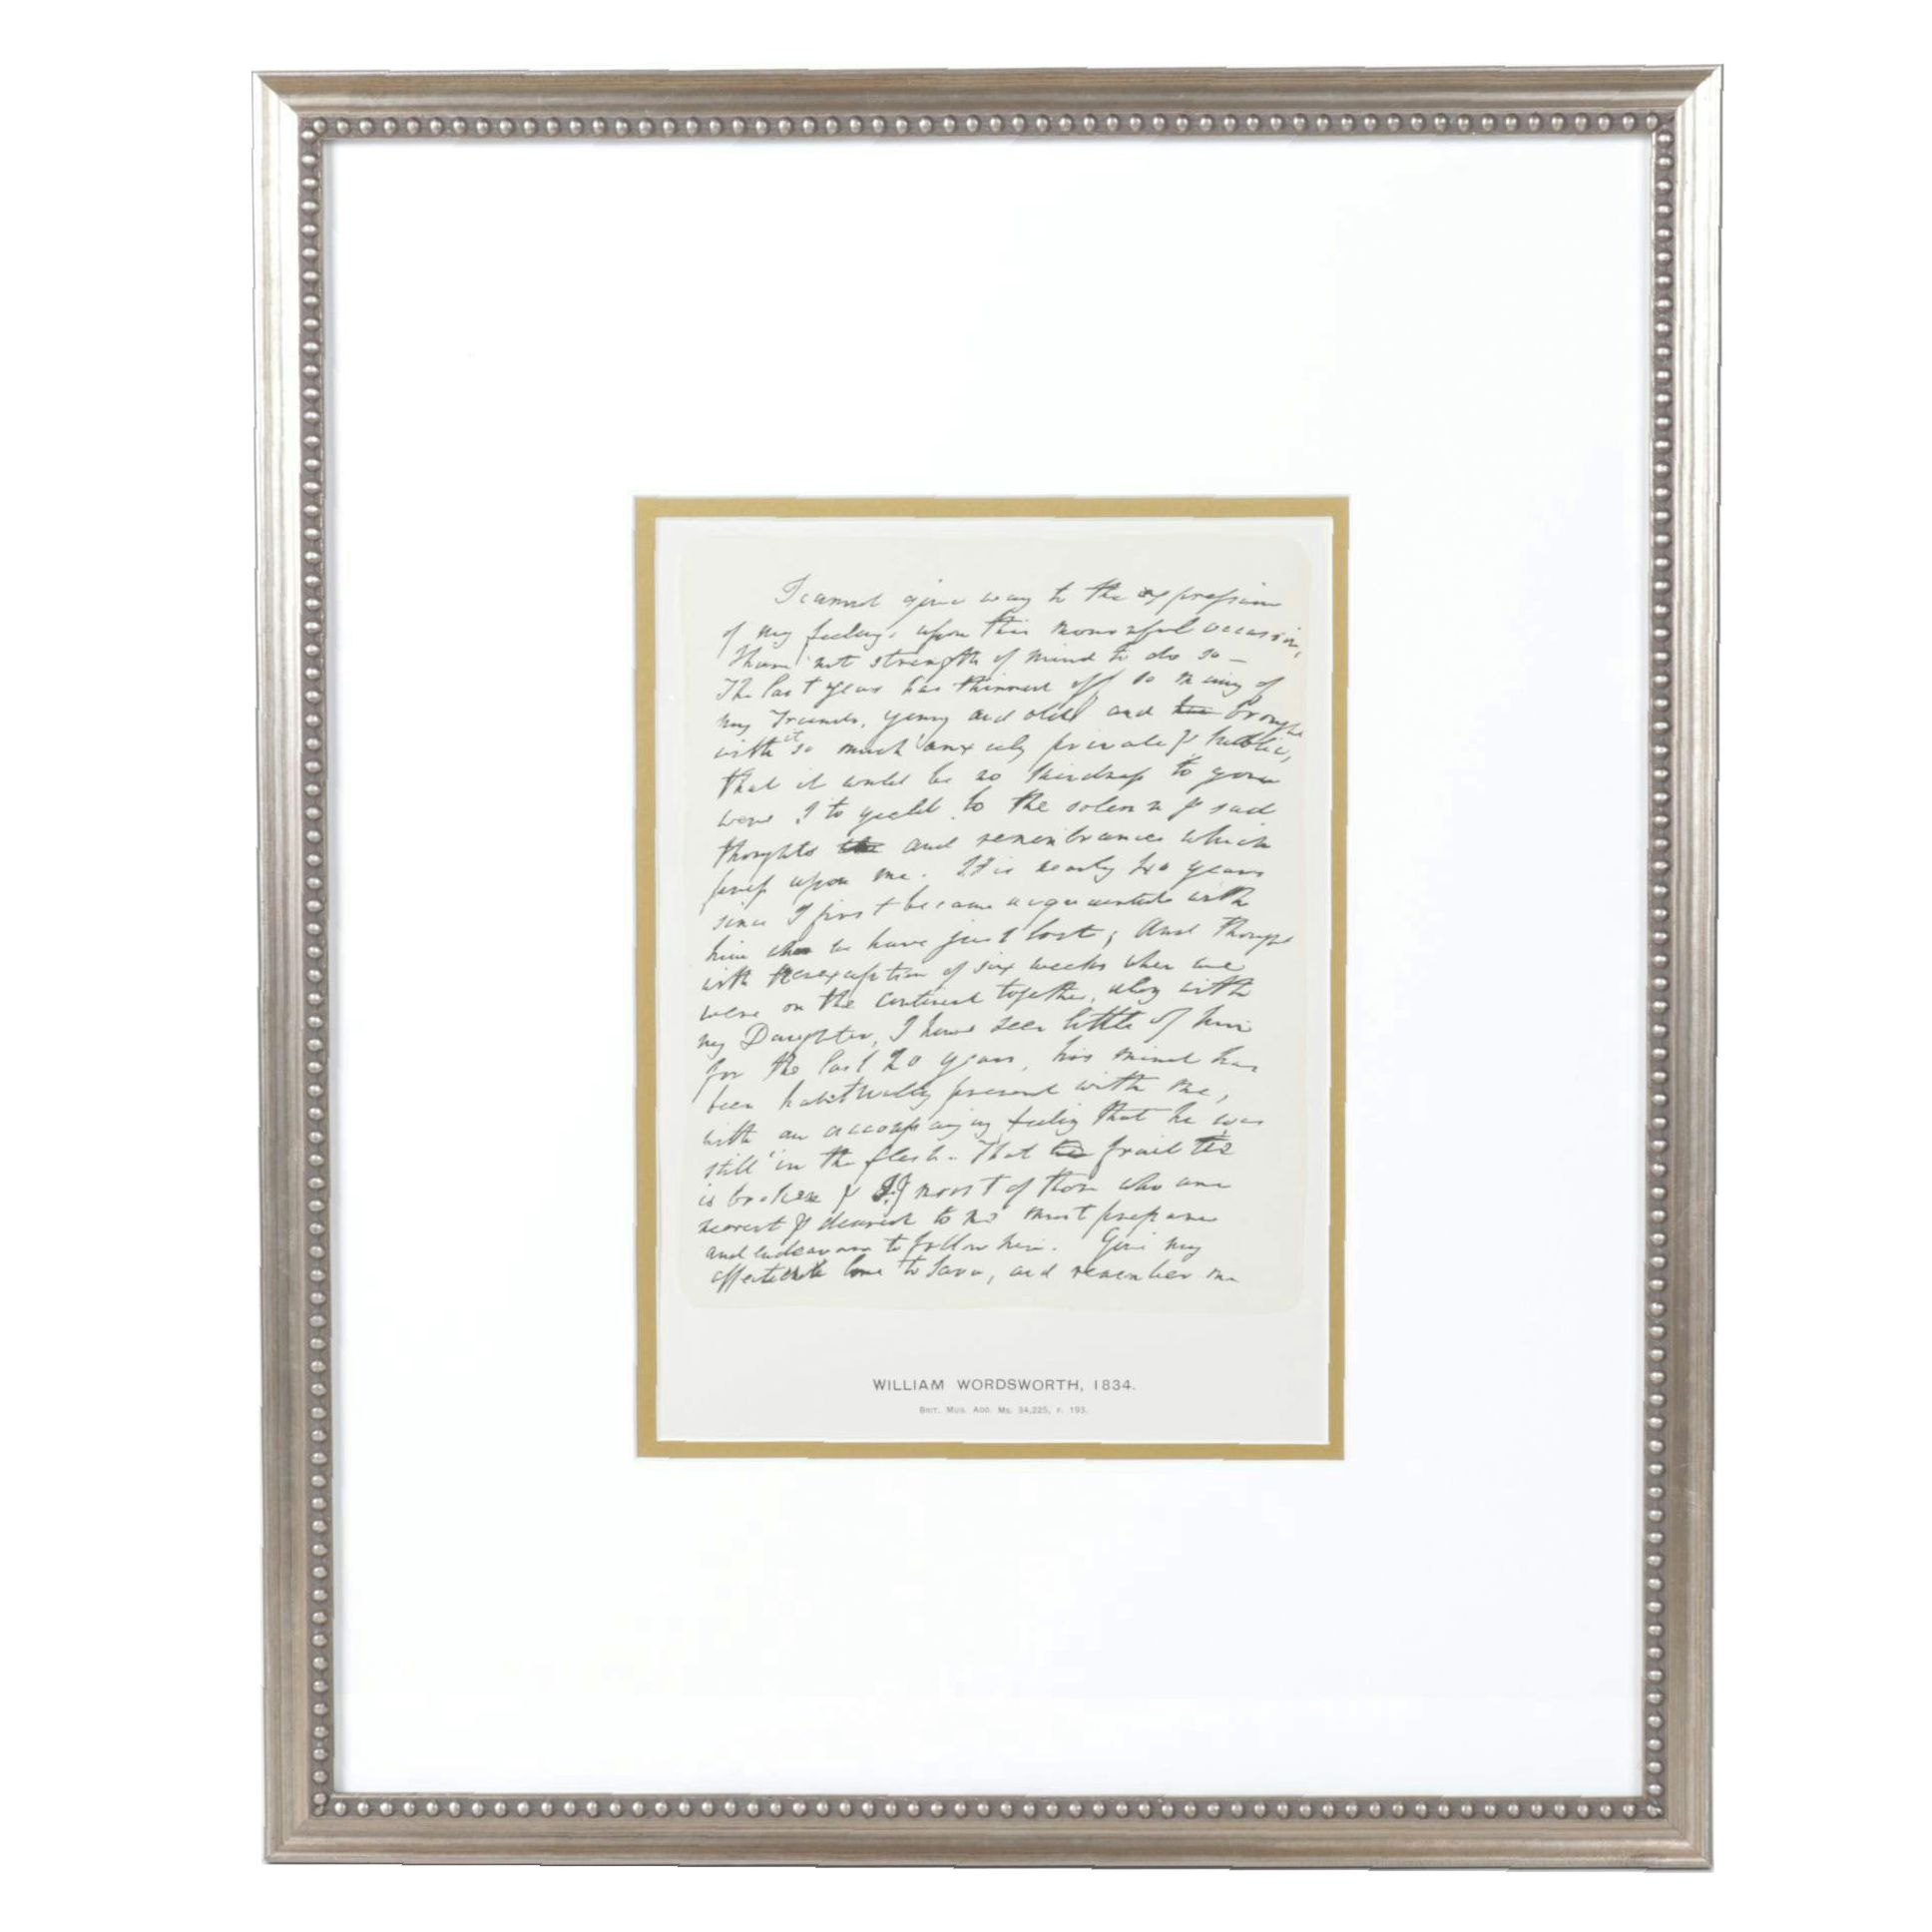 I cannot give way to the expression
of my feelings upon this mournful occasion,
I have not strength of mind to do so —
The last year has thinned off so many of
my Friends, young and old and has brought
with it so much anxiety private & public,
that it would be no kindness to you
were I to yield to the solemn & sad
thoughts the and remembrances which
press upon me. It is nearly 40 years
since I first became acquainted with
him whom we have just lost; and though
with the exception of six weeks when we
were on the continent together, along with
my Daughter, I have seen little of him
for the last 20 years, his mind has
been habitually present with me,
with an accompanying feeling that he was
still in the flesh. That frail tie
is broken & I, & most of those who are
nearest & dearest to me must prepare
and endeavour to follow him. Give my
affectionate love to Sara, and remember me
WILLIAM WORDSWORTH, 1834.
BRIT. MUS. ADD. MS. 34,225, F. 193.